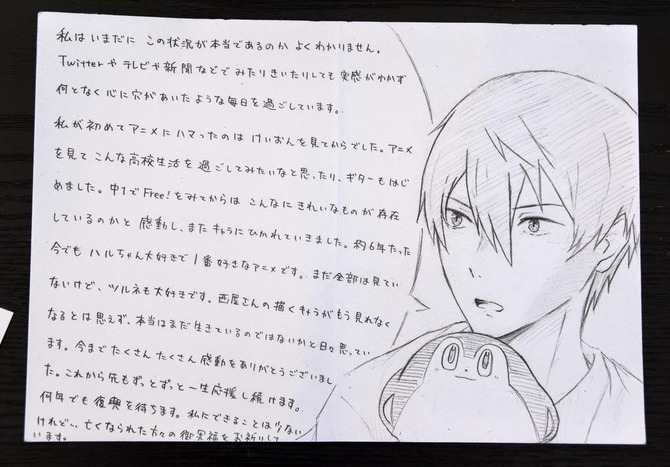 私はいまだに この状況が本当であるのか よくわかりません。
Twitterや テレビや新聞などで みたりきいたりしても 実感がわかず
何となく心に穴があいたような毎日を過ごしています。
私が初めてアニメにハマったのは けいおんを見てからでした。アニメ
を見て こんな高校生活を 過ごしてみたいなと思ったり、ギターもはじ
めました。中1で Free!をみてからは こんなにきれいなものが存在
しているのかと 感動し、またキャラにひかれていきました。約6年たった
今でも ハルちゃん大好きで 1番好きなアニメです。まだ全部は見てい
ないけど、ツルネも大好きです。西屋さんの描くキャラがもう見れなく
なるとは思えず、本当はまだ生きているのではないかと日々思ってい
ます。今まで たくさん たくさん 感動をありがとうございまし
た。これから先もずっとずっと一生応援し続けます。
何年でも復興を待ちます。私にできることは少ない
けれど、亡くなられた方々の御冥福をお祈りして
います。